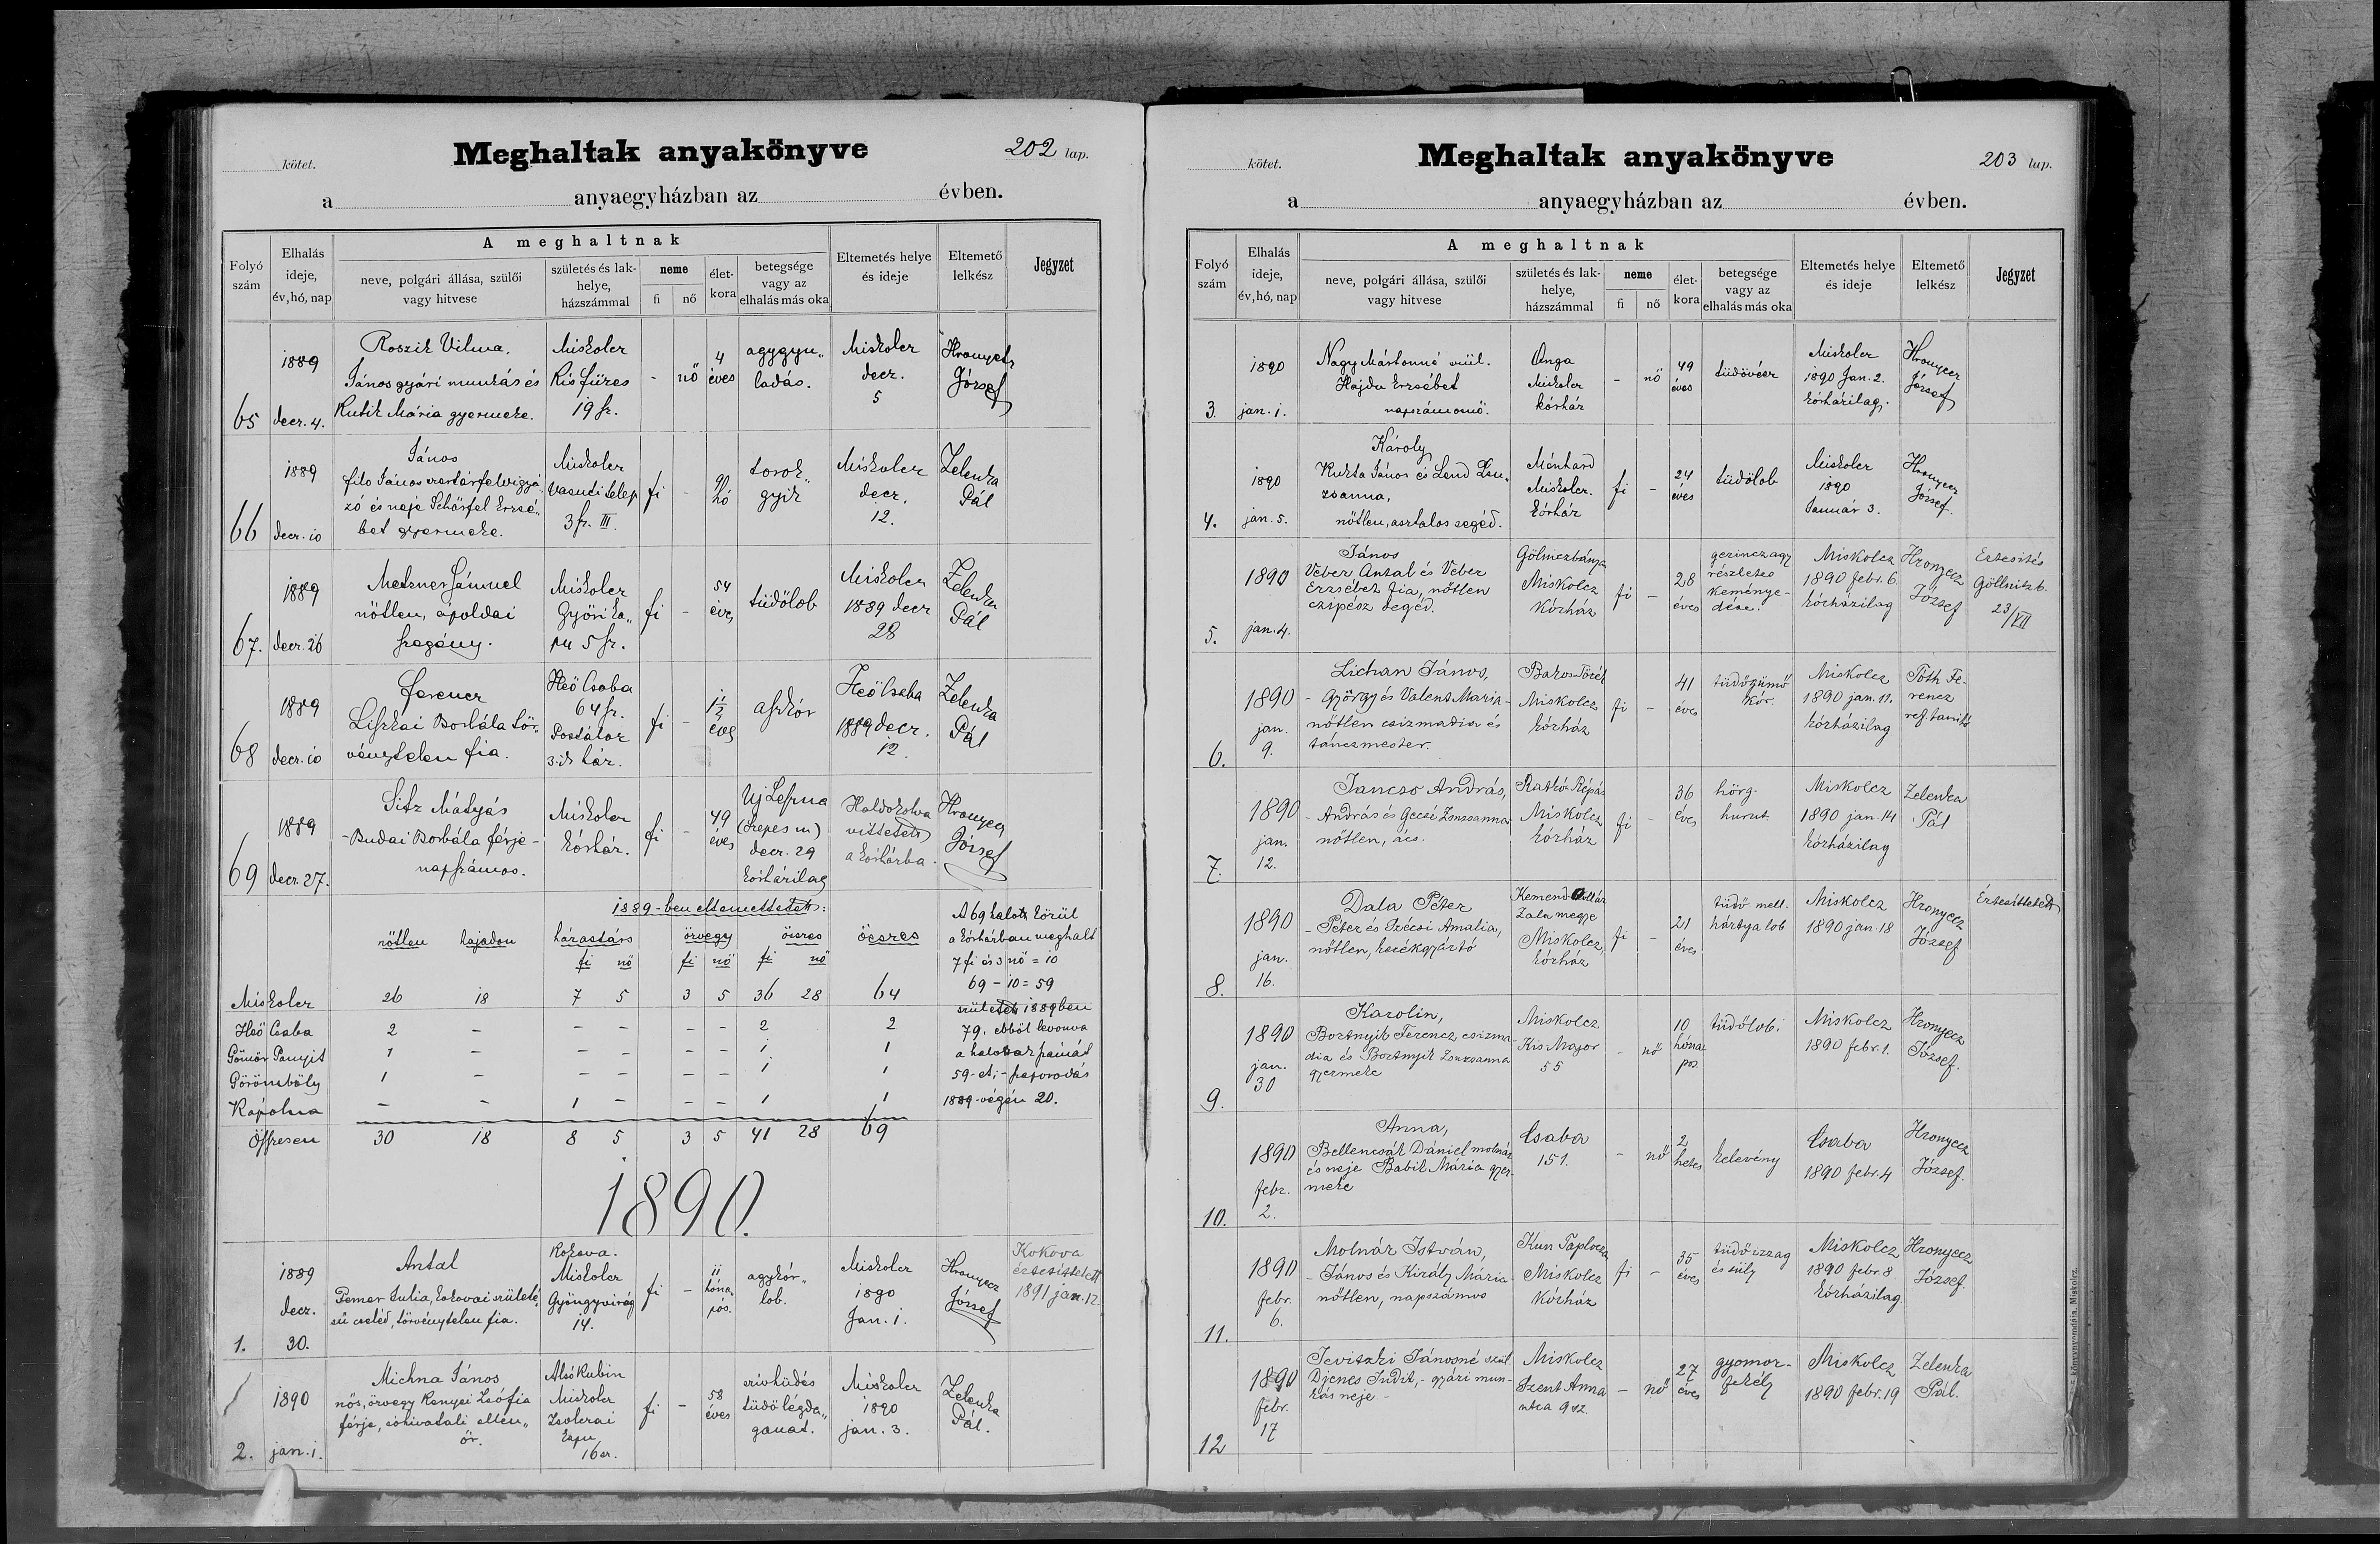 kötet.
Meghaltak anyakönyve
202 lap.
a anyaegyházban az évben.
Folyó szám
Elhalás ideje, év, hó, nap
A meghaltnak
neve, polgári állása, szülői vagy hitvese
születés és lakhelye, házszámmal
neme
fi
nő
életkora
betegsége vagy az elhalás más oka
Eltemetés helye és ideje
Eltemető lelkész
Jegyzet
65
1889
decz. 4.
Roszik Vilma,
János gyári munkás és
Kubik Mária gyermeke.
Miskolcz
Kis füzes
19 sz.
-
nő
4
éves
agygyu„
ladás.
Miskolcz
decz.
5
Hronyecz
József
66
1889
decz. 10
János
Filo János szertárfelvigyá„
zó és neje Schärfel Erzsé„
bet gyermeke.
Miskolcz
vasuti telep
3 sz. III.
fi
-
hó
torok„
gyik
Miskolcz
decz.
12.
Zelenka
Pál
67.
1889
decz. 26
Metzner Sámuel
nőtlen, ápoldai
szegény.
Miskolcz
Győri ka„
pu 5 sz.
fi
-
54
éves
tüdőlob
Miskolcz
1889 decz
28
Zelenka
Pál
68
1889
decz. 10
Ferencz
Liszkai Borbála tör„
vénytelen fia.
Heő Csaba
64 sz.
fi
-
1½
éves
aszkór
Heő Csaba
1889 decz.
12.
Zelenka
Pál
69
1889
decz. 27.
Sitz Mátyás
- Budai Borbála férje -
napszámos.
Miskolcz
kórház.
fi
-
49
éves
Uj Leszna
(Szepes m)
decz. 29
kórházilag
Haldokolva
vittetett
a kórházba.
Hronyecz
József
1889-ben eltemettetett:
nőtlen hajadon házastárs özvegy összes összes
fi nő fi nő fi nő
Miskolcz 26 18 7 5 3 5 36 28 64
Heő Csaba 2 - - - - - 2 2
Gömör Panyit 1 - - - - - 1 1
Görömböly 1 - - - - - 1 1
Kápolna - - 1 - - - 1 1
Összesen 30 18 8 5 3 5 41 28 69
A 69 halott közül
a kórházban meghalt
7 fi és 3 nő = 10
69 - 10 = 59
született 1889 ben
79, ebből levonva
a halottak számát
59-et; - szaporodás
1889-végén 20.
1890.
1.
1889
decz.
30.
Antal
Pemer Julia, kokovai születé„
sü cseléd, törvénytelen fia.
Kokova.
Miskolcz
Gyöngyvirág
14.
fi
-
11
hóna„
pos.
agykór„
lob.
Miskolcz
1890
Jan. 1.
Hronyecz
József
Kokova
értesíttetett
1891 jan. 12.
2.
1890
jan. 1.
Michna János
nős, özvegy Kenyei Zsófia
férje, sóhivatali ellen„
őr.
Alsó Kubin
Miskolcz
Zsolczai
kapu
16 sz.
fi
-
58
éves
szivhüdés
tüdő légda„
ganat.
Miskolcz
1890
jan. 3.
Zelenka
Pál.
kötet.
Meghaltak anyakönyve
203 lap.
a anyaegyházban az évben.
Folyó szám
Elhalás ideje, év, hó, nap
A meghaltnak
neve, polgári állása, szülői vagy hitvese
születés és lakhelye, házszámmal
neme
fi
nő
életkora
betegsége vagy az elhalás más oka
Eltemetés helye és ideje
Eltemető lelkész
Jegyzet
3.
1890
jan. 1.
Nagy Mártonné szül.
Hajdu Erzsébet
napszámosnő.
Onga
Miskolcz
kórház
-
nő
49
éves
tüdővész
Miskolcz
1890 Jan. 2.
kórházilag.
Hronyecz
József
4.
1890
jan. 5.
Károly
Kukta János és Lend Zsu„
zsanna,
nőtlen, asztalos segéd.
Ménhard
Miskolcz.
kórház
fi
-
24
éves
tüdőlob
Miskolcz
1890
Január 3.
Hronyecz
József.
5.
1890
jan. 4.
János
Véber Antal és Véber
Erzsébet fia, nőtlen
czipész segéd.
Gölniczbánya
Miskolcz
Kórház
fi
-
28
éves
gerinczagy
részletes
keménye-
dése.
Miskolcz
1890 febr. 6
kórházilag
Hronyecz
József
Értesítés
Göllnitzb.
23/VII
6.
1890
jan.
9.
Lichan János,
- György és Valent Maria -
nőtlen csizmadia és
tánczmester.
Miskolcz
kórház
fi
-
41
éves
tüdőgümő
kór.
Miskolcz
1890 jan. 11.
kórházilag
Tóth Fe-
rencz
ref. tanító
7.
1890
jan.
12.
Jancso András,
- András és Gecsei Zsuzsanna
nőtlen, ács.
Ratkó Répás
Miskolcz
kórház
fi
-
36
éves
hörg-
hurut.
Miskolcz
1890 jan. 14
kórházilag
Zelenka
Pál
8.
1890
jan.
16.
Dala Péter
- Péter és Szécsi Amalia,
nőtlen, kerékgyártó
Zala megye
Miskolcz,
kórház
fi
-
21
éves
tüdő mell-
hártya lob
Miskolcz
1890 jan. 18
Hronyecz
József
Értesíttetett
9.
1890
jan.
30
Karolin,
Bortnyik Ferencz csizma-
dia és Bortnyik Zsuzsanna
gyermeke
Miskolcz
Kis Major
55
-
nő
10
hóna
pos.
tüdőlob.
Miskolcz
1890 febr. 1.
Hronyecz
József.
10.
1890
febr.
2.
Anna,
Bellencsák Dániel molnár
és neje Babik Mária gyer-
meke
Csaba
151.
-
nő
2
hetes
kelevény
Csaba
1890 febr. 4
Hronyecz
József.
11.
1890
febr.
6.
Molnár István,
- János és Király Mária
nőtlen, napszámos
Kun Taplocza
Miskolcz
Kórház
fi
-
35
éves
tüdőizzag
és süly
Miskolcz
1890 febr. 8
kórházilag.
Hronyecz
József.
12
1890
febr.
17
Jevitzki Jánosné szül.
Djenes Judit, - gyári mun-
kás neje -
Miskolcz
Szent Anna
utca 942.
-
nő
27
éves
gyomor-
fekély
Miskolcz
1890 febr. 19
Zelenka
Pál.
könyvnyomdája, Miskolcz.